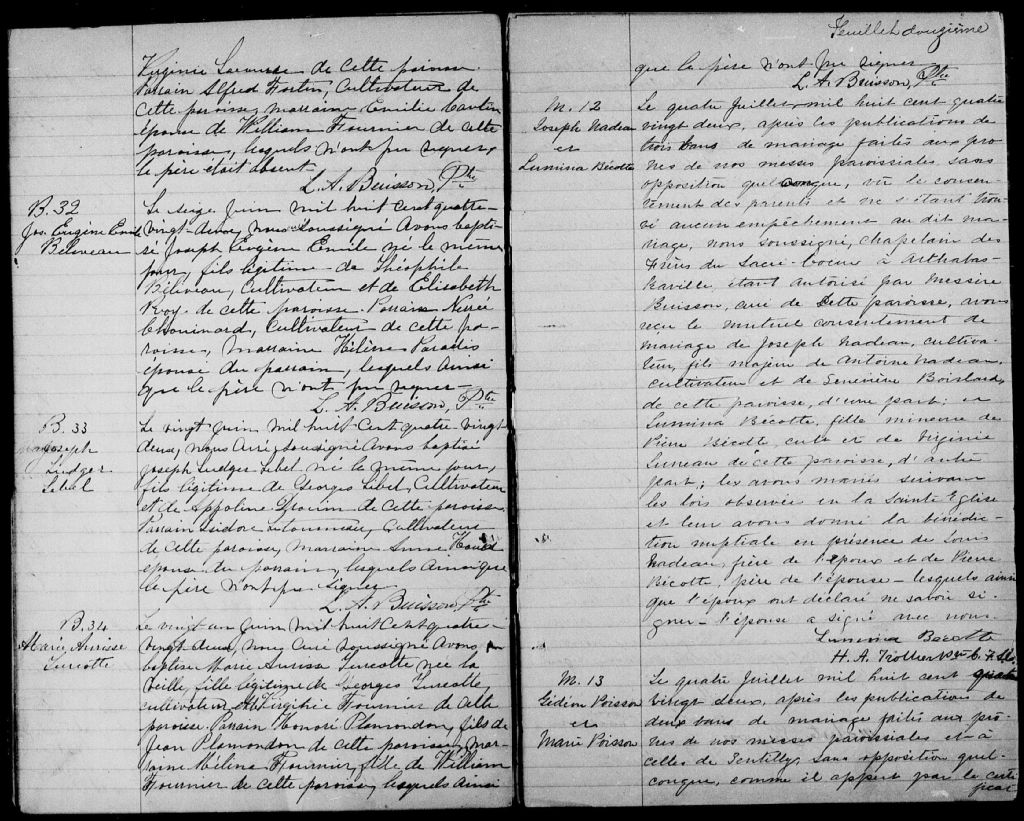 Virginie de cette paroisse.
Parrain Alfred Fortin, Cultivateur de
cette paroisse, marraine Emilie Cantin
épouse de William Fournier de cette
paroisse, lesquels n'ont pu signer,
le père était absent.
L. A. Buisson, Ptre
B. 32
Jos. Eugène Emile
Béliveau
Le seize Juin mil huit cent quatre-
vingt-deux, nous soussigné avons bapti-
sé Joseph Eugène Emile né le même
jour, fils légitime de Théophile
Béliveau, Cultivateur et de Elisabeth
Roy de cette paroisse. Parrain Nérée
Chouinard, Cultivateur de cette pa-
roisse, marraine Hélène Paradis
épouse du parrain, lesquels ainsi
que le père n'ont pu signer.
L. A. Buisson, Ptre
B. 33
Joseph
Ludger
Lebel
Le vingt Juin mil huit cent quatre-vingt
deux, nous Curé soussigné avons baptisé
Joseph Ludger Lebel né le même jour,
fils légitime de Georges Lebel, Cultivateur
et de Appoline de cette paroisse
Parrain Isidore Letourneau, Cultivateur
de cette paroisse, marraine Anne
épouse du parrain, lesquels ainsi que
le père n'ont pu signer
L. A. Buisson Ptre
B. 34
Marie Aurisse
Turcotte
Le vingt un Juin mil huit cent quatre-
vingt deux, nous Curé soussigné avons
baptisé Marie Aurisse Turcotte née la
veille, fille légitime de Georges Turcotte,
cultivateur et de Virginie Fournier de cette
paroisse. Parrain Honoré Plamondon, fils de
Jean Plamondon de cette paroisse, mar-
raine Célina Fournier, fille de William
Fournier de cette paroisse, lesquels ainsi
Feuillet douzième
que le père n'ont pu signer
L. A. Buisson, Ptre
M. 12
Joseph Nadeau
et
Lumina Bécotte
Le quatre Juillet mil huit cent quatre
vingt deux, après les publications de
trois bans de mariage faites aux prô-
nes de nos messes paroissiales sans
opposition quelconque, vu le consen-
tement des parents et ne s'étant trou-
vé aucun empêchement au dit ma-
riage, nous soussigné, chapelain des
Frères du Sacré-Coeur à Arthabas-
kaville, étant autorisé par Messire
Buisson, curé de cette paroisse, avons
reçu le mutuel consentement de
mariage de Joseph Nadeau, cultiva-
teur, fils majeur de Antoine Nadeau,
cultivateur et de Geneviève Boisland,
de cette paroisse, d'une part; et
Lumina Bécotte, fille mineure de
Pierre Bécotte, cult. et de Virginie
Luneau de cette paroisse, d'autre
part; les avons mariés suivant
les lois observées en la Sainte Eglise
et leur avons donné la bénédic-
tion nuptiale en présence de Louis
Nadeau, frère de l'époux et de Pierre
Bécotte père de l'épouse - lesquels ainsi
que l'époux ont déclaré ne savoir si-
gner - l'épouse a signé avec nous.
Lumina Bécotte
H. A. Trottier
M. 13
Gédéon Poisson
et
Marie Poisson
Le quatre Juillet mil huit cent quatre
vingt deux, après les publications de
deux bans de mariage faites aux prô-
nes de nos messes paroissiales et à
celles de Gentilly, sans opposition quel-
conque, comme il appert par le certi-
ficat